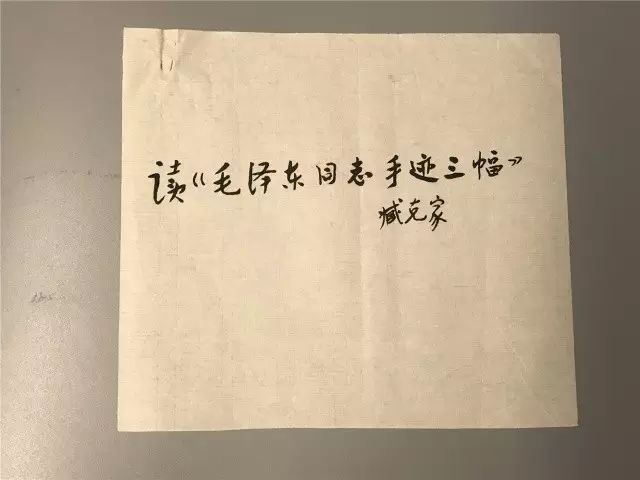 读《毛泽东同志手迹三幅》
臧克家